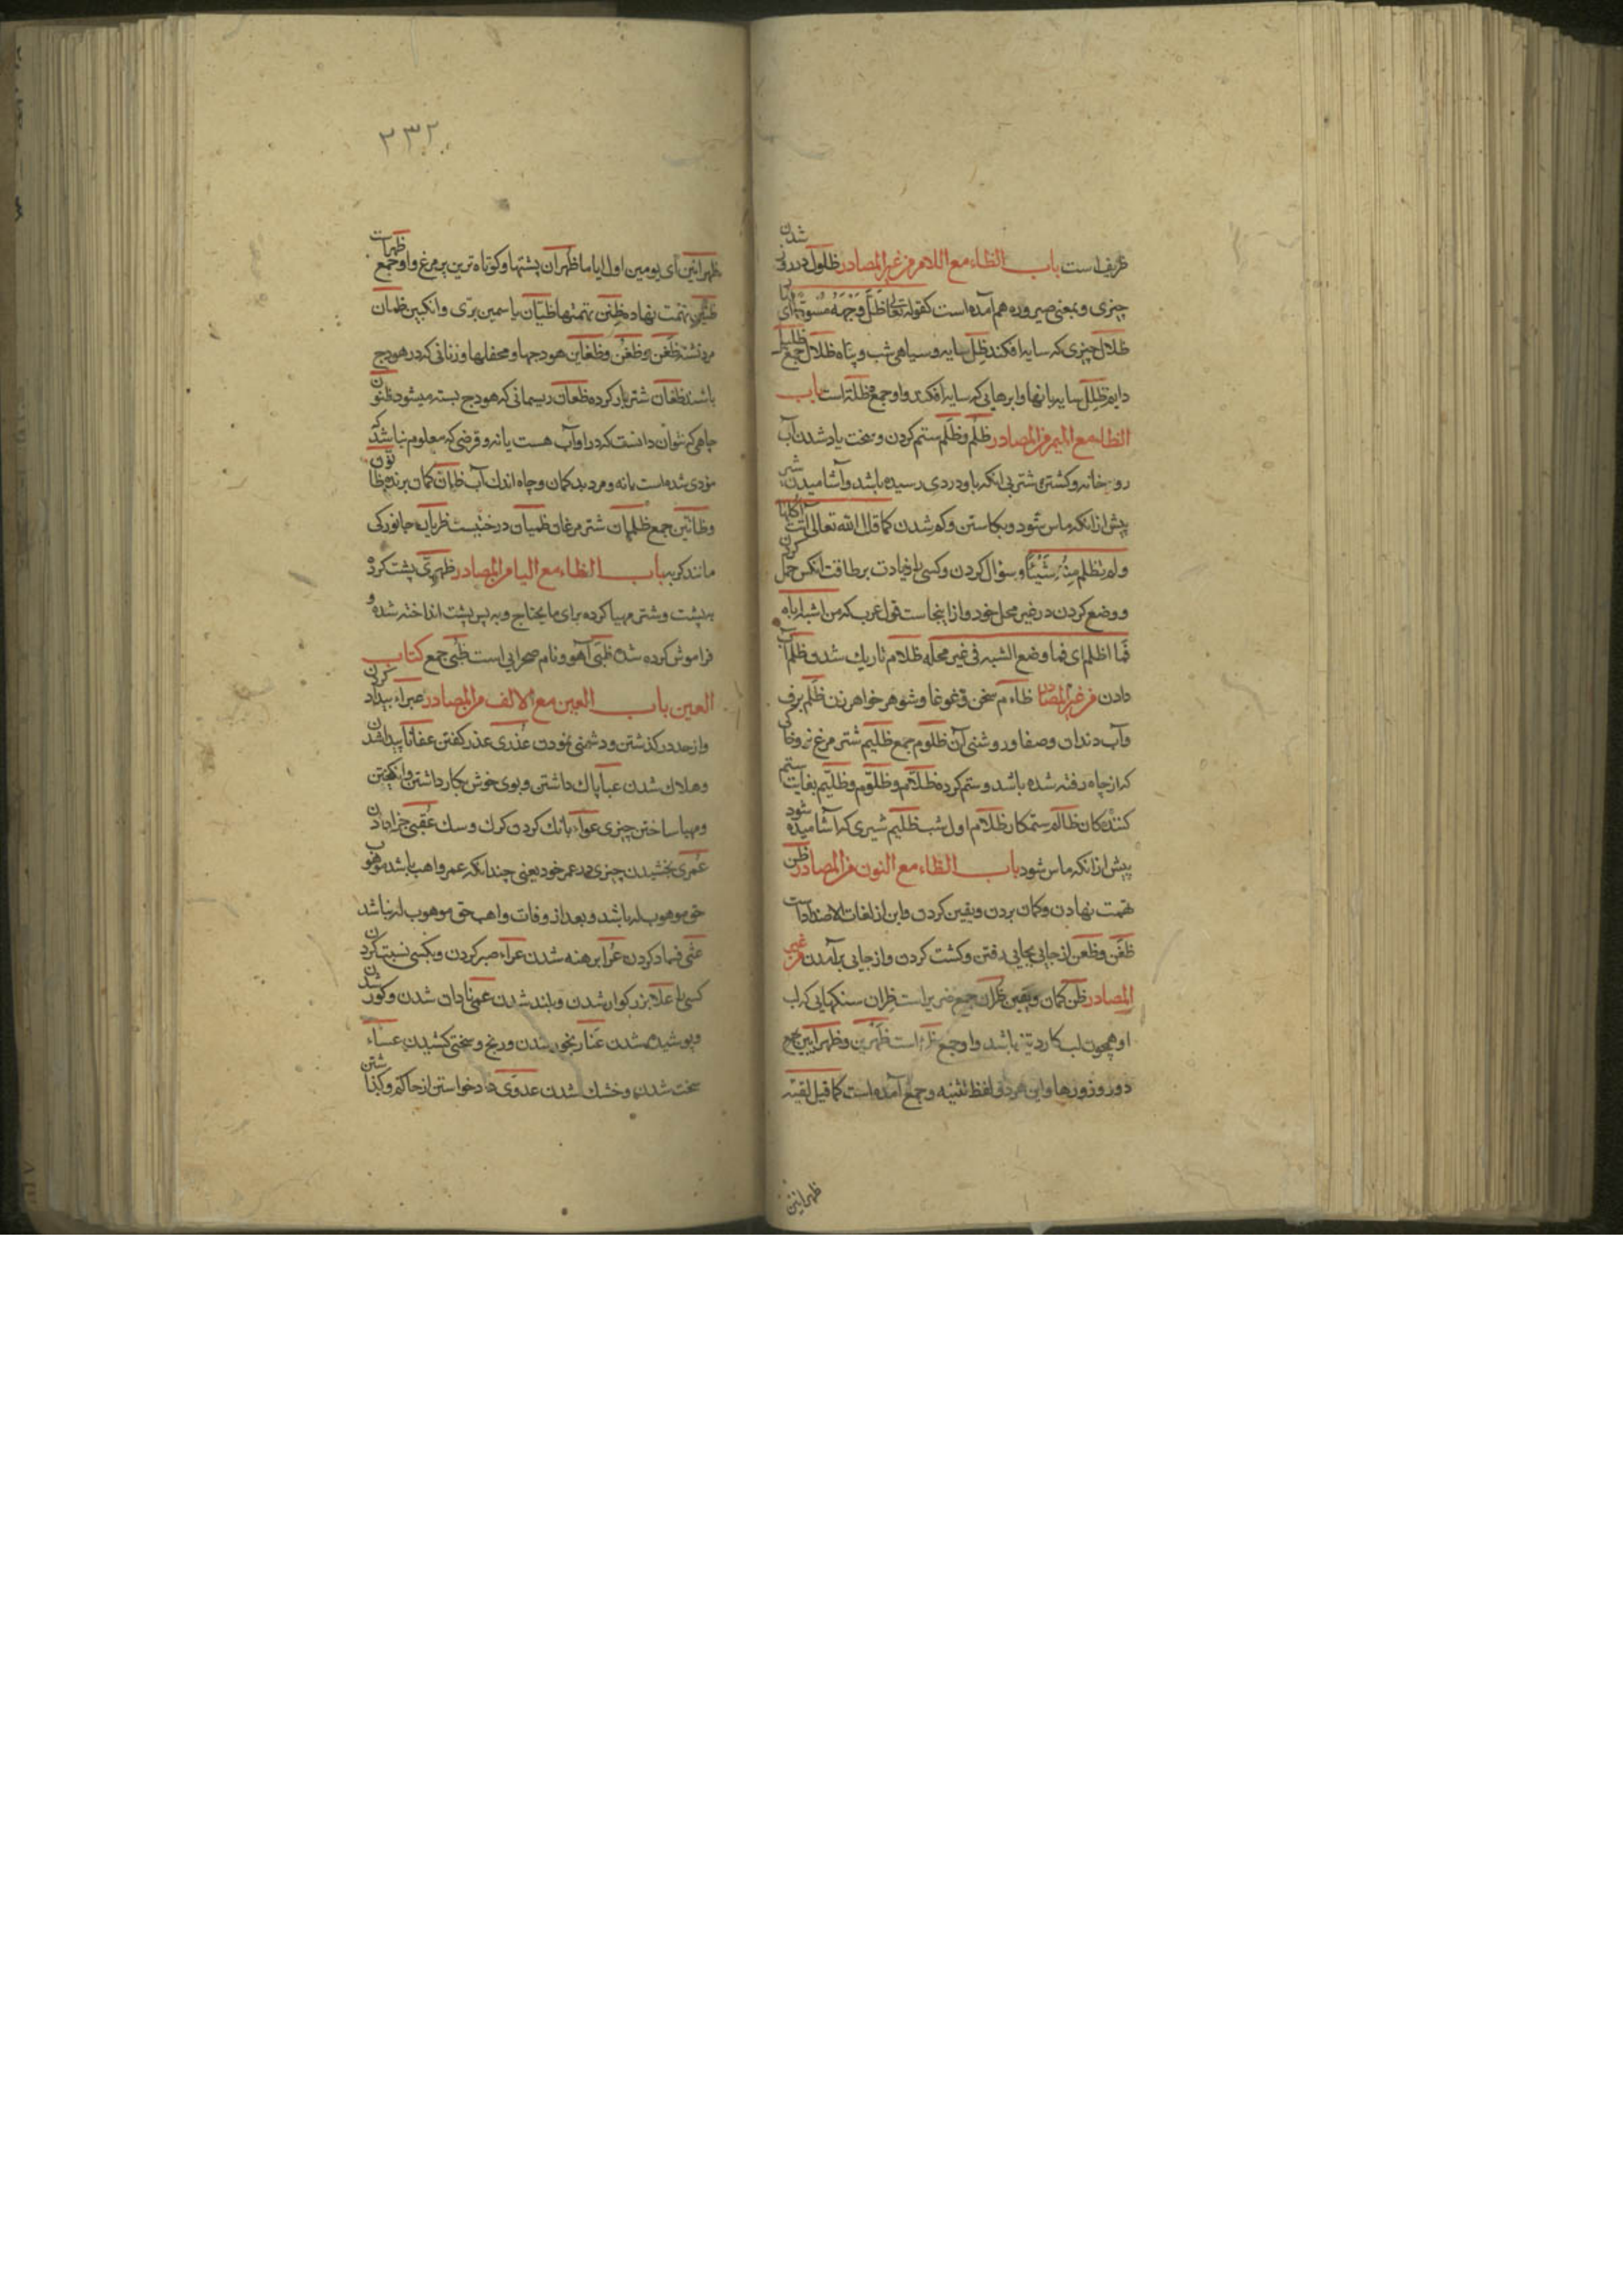 ظریف است باب الظاء مع اللام من غیر المصادر ظلول در روز شدن
چیزی و بمعنی صیروره هم آمده است کقوله تعالی ظل وجهه مسودا ای
ظلال چیزی که سایه افکند ظل سایه و سیاهی شب و پناه ظلال جمع ظلیل
دایم ظلل سایه بانها و ابرهایی که سایه افکند و او جمع ظلة است باب
الظاء مع المیم من المصادر ظلم و ظلم ستم کردن و سخت یاد شدن آب
رو خانه و کشتن شتر بی انکه باو دردی رسیده باشد و آشامیدن شیر
پیش از انکه ماس شود و بکاستن و کم شدن کما قال الله تعالی آتت اکلها
ولم تظلم منه شیئا و سؤال کردن و کسی را زیادت بر طاقت انکس حمل کردن
و وضع کردن در غیر محل خود و از اینجاست قول عرب که من اشبه اباه
فما اظلم ای فما وضع الشبه فی غیر محله ظلام تاریك شد و ظلم آب
دادن من غیر المصادر ظاءم سخن و غوغا و شوهر خواهر زن ظلم برف
و آب دندان و صفا و روشنی آن ظلوم جمع ظلیم شتر مرغ نر و خاکی
که از چاه رفته شده باشد و ستم کرده ظلام و ظلوم و ظلیم بغایت ستم
کننده کان ظالم ستمکار ظلام اول شب ظلیم شیری که آشامیده شود
پیش از انکه ماس شود باب الظاء مع النون من المصادر ظن
تهمت نهادن و کمان بردن و یقین کردن و این از لغات الاضداد است
ظعن و ظعن از جایی بجایی رفتن و کشت کردن و از جایی برآمدن من غیر
المصادر ظن کمان و یقین ظران جمع ضریر است ظران سنکهایی که لب
او همچون لب کارد تیز باشد و او جمع است ظهرین و ظهرانین جمع
دو روز و روزها و این هر دو لفظ تثنیه و جمع آمده است کما قیل لقیته
ظهرانین
۲۳۲
ظهرانین ای یومین او ایاما ظهران پشتها و کوتاه ترین پر مرغ و او جمع ظهرات
ظنین تهمت نهاده ظنن تهمتها ظیان یاسمین بری و انکبین ظمان
مرد تشنه ظعن و ظعن و ظعاین هودجها و محفلها و زنانی که در هودج
باشند ظعان شتر بار کرده ظعان ریسمانی که هودج بسته میشود ظنون
چاهی که نتوان دانست که در او آب هست یا نه و قرضی که معلوم نباشد که
مؤدی شده است یا نه و مرد بد کمان و چاه اندك آب ظان کمان برنده
و ظانین جمع ظلمان شتر مرغان ظمیان درختیست ظربان جانورکی
مانند کربه باب الظاء مع الیا من المصادر ظهری پشت کرد
به پشت و شتر مهیا کرده برای ما یحتاج و به پس پشت انداخته شده و
فراموش کرده شده ظبی آهو و نام صحرایی است ظبی جمع کتاب
العین باب العین مع الالف من المصادر عبراء بیداد کردن
و از حد در کذشتن و دشمنی نمودن عذری عذر کفتن عفا ناپیدا شدن
و هلاك شدن عبا پاك داشتن و بوی خوش بکار داشتن
و مهیا ساختن چیزی عواء بانك کردن کرك و سك عقبی جزا دادن
عمری بخشیدن چیزی در عمر خود یعنی چندانکه عمر واهب باشد موهوب
حق موهوب له باشد و بعد از وفات واهب حق موهوب له نباشد
عثی فساد کردن عرا برهنه شدن عزاء صبر کردن و بکسی نسبت کردن
کسی را علا بزرکوار شدن و بلند شدن عمی نادان شدن و کور شدن
و پوشیده شدن عنا رنجور شدن و رنج و سختی کشیدن عساء
سخت شدن و خشك شدن عدوی داد خواستن از حاکم و کذاشتن